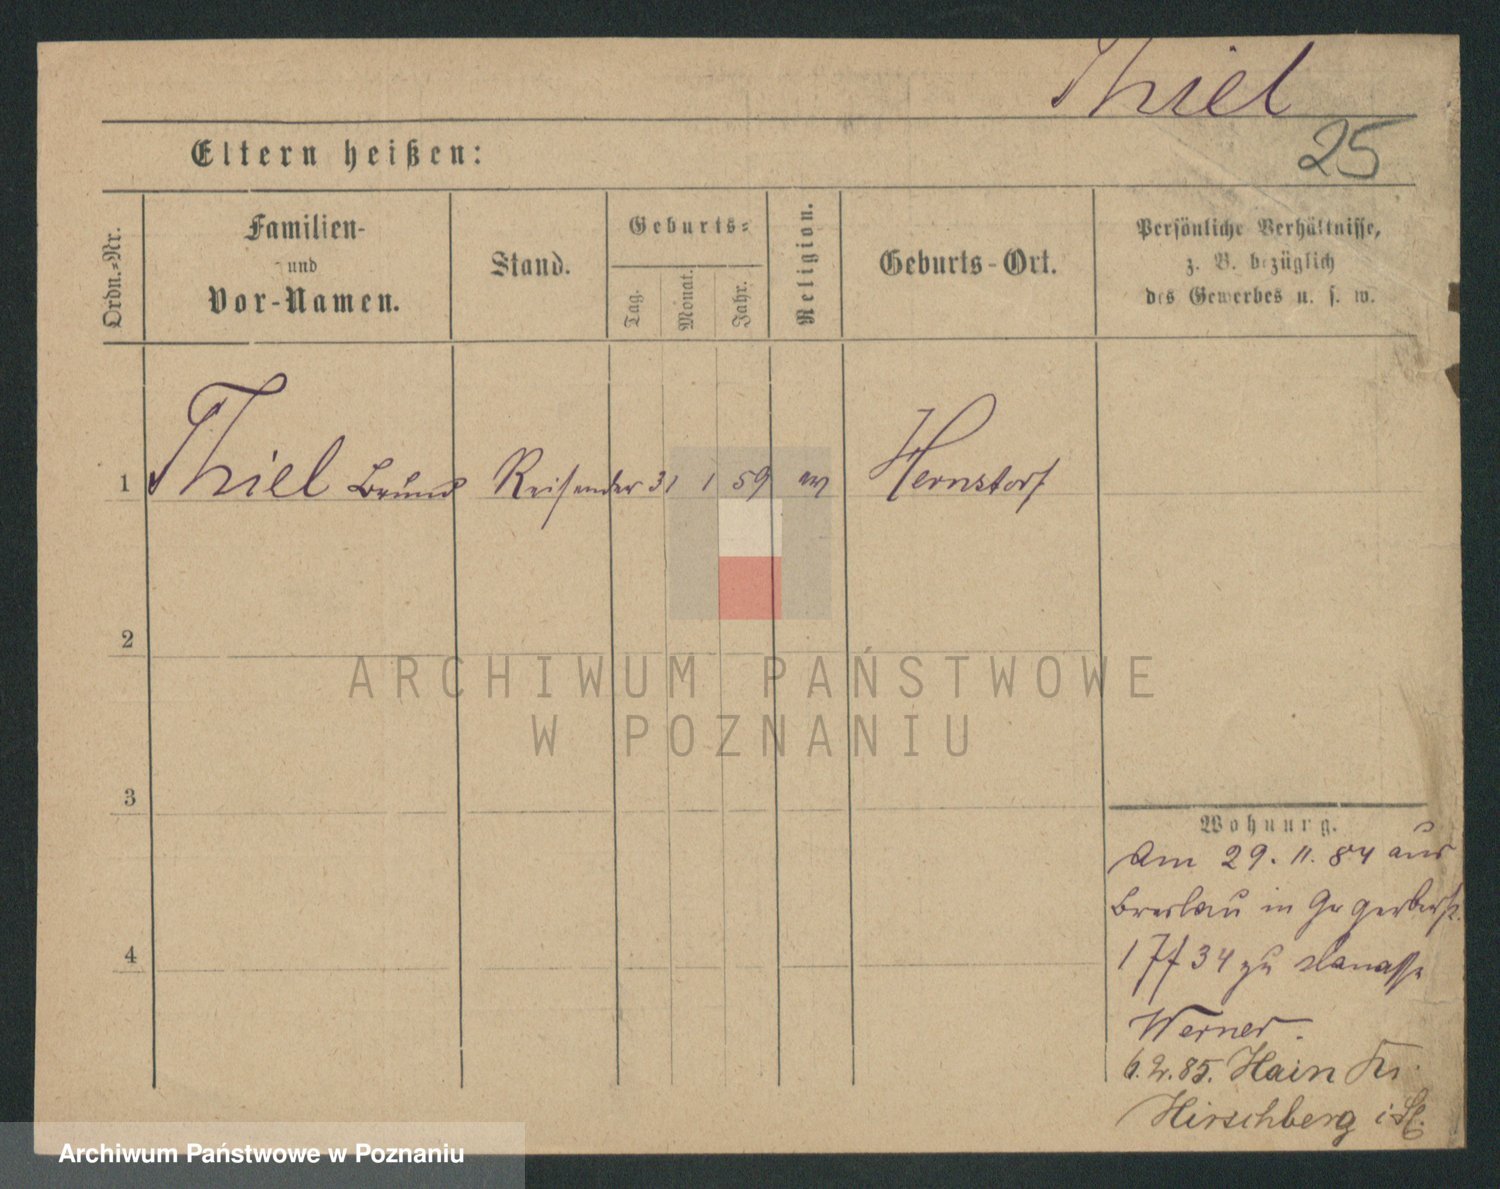 Thiel
25
Eltern heißen:
Ordn.-Nr.
Familien-
und
Vor-Namen.
Stand.
Geburts-
Tag.
Monat.
Jahr.
Religion.
Geburts-Ort.
Persönliche Verhältnisse,
z. B. bezüglich
des Gewerbes u. s. w.
1 Thiel Bruno Reisender 31 1 59 ev Hernstorf
2
ARCHIWUM PAŃSTWOWE
W POZNANIU
3
4
Wohnung.
Am 29. 11. 84 aus
Breslau in Gr Gerberstr.
17/34 zu
Werner.
6.2.85. Hain Kr.
Hirschberg i Sch.
Archiwum Państwowe w Poznaniu